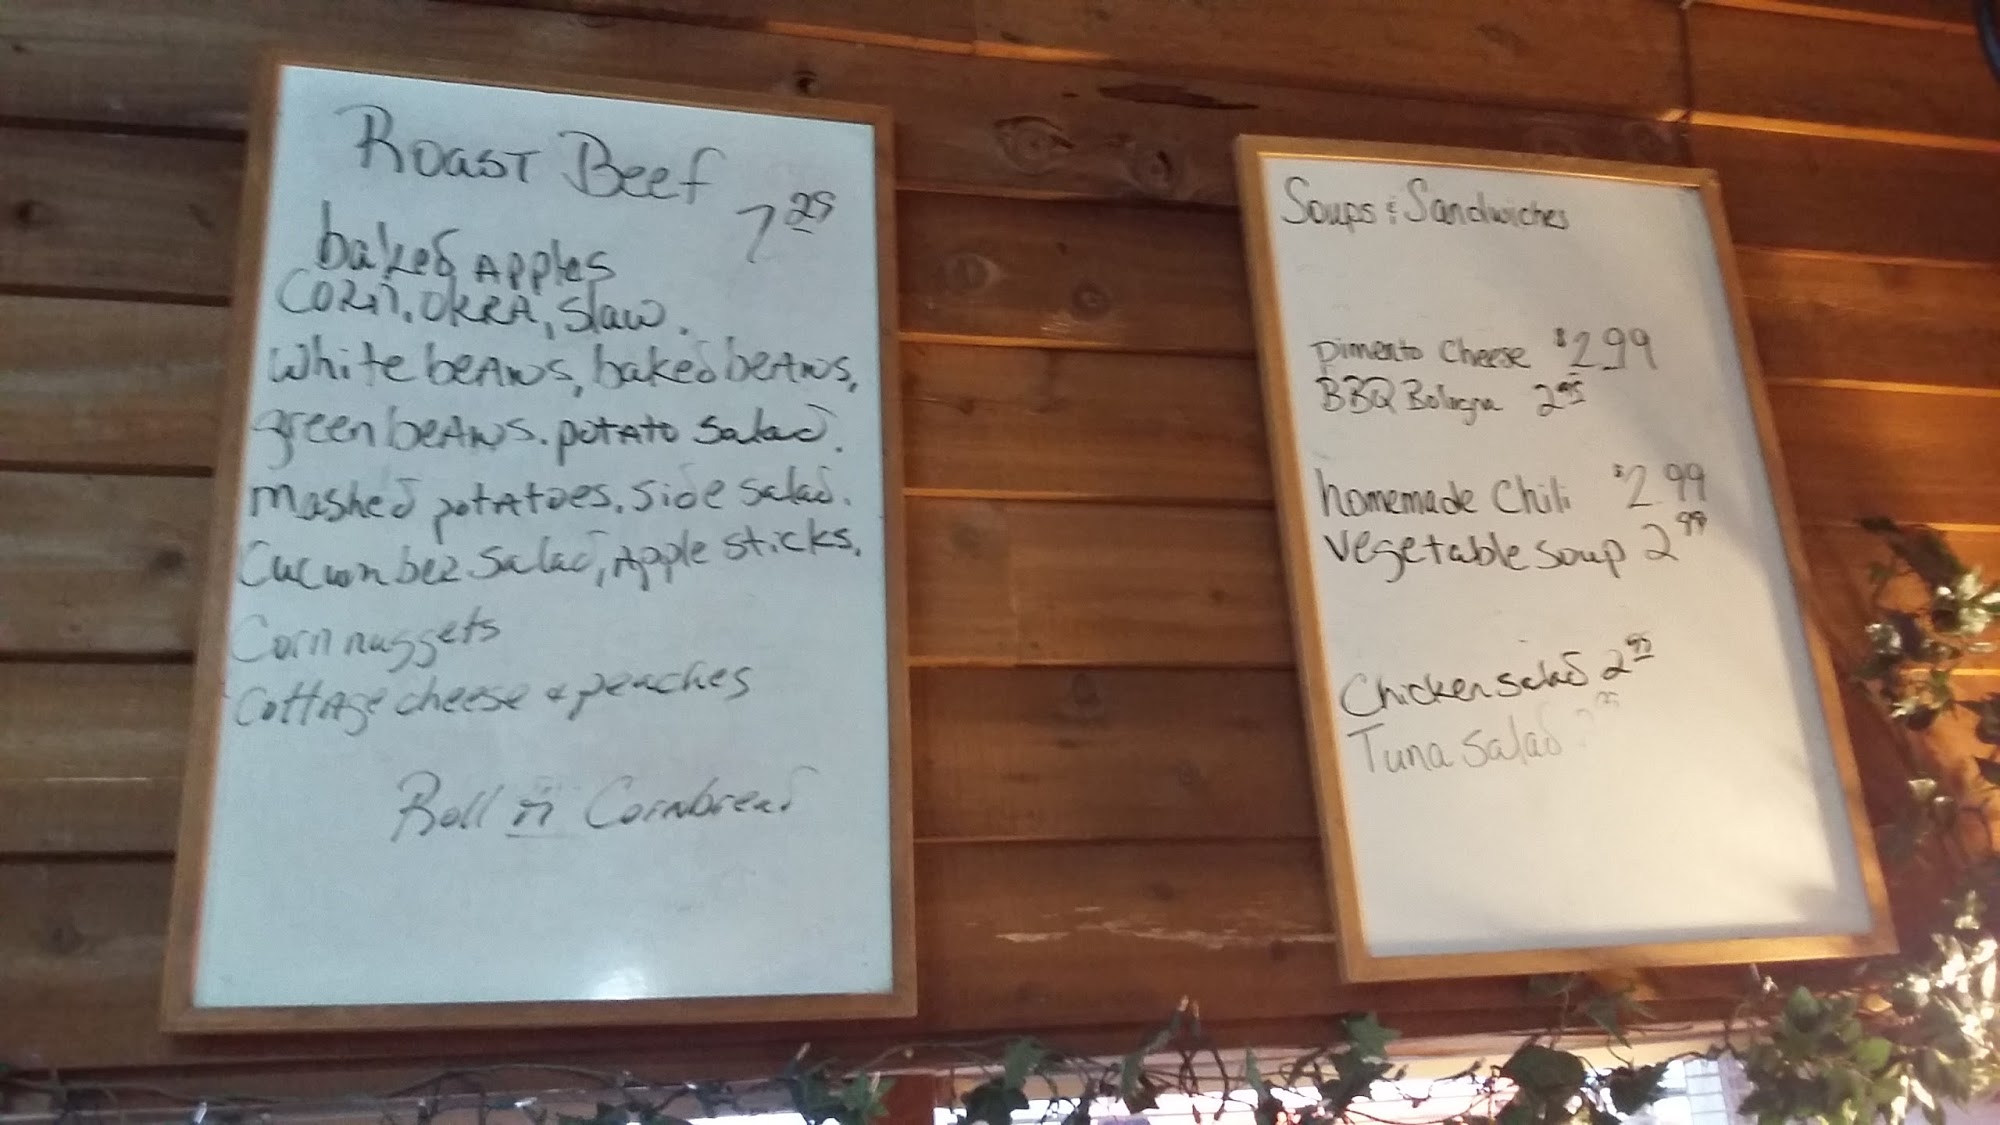 Roast Beef
7.25
baked Apples
Corn, OKRA, Slaw.
White beans, baked beans,
green beans. potato salad.
Mashed potatoes. Side salad.
Cucumber Salad, Apple sticks,
Corn nuggets
Cottage cheese & peaches
Roll Cornbread
Soups & Sandwiches
Pimento Cheese $2.99
BBQ Bologna 2.95
homemade Chili $2.99
Vegetable soup 2.99
Chicken salad 2.95
Tuna Salad